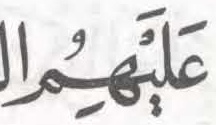 عَلَيْهِمُ ال